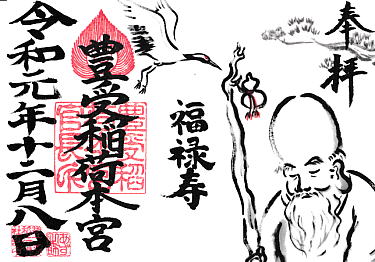 奉拝
福禄寿
豊受稲荷本宮
令和元年十二月八日